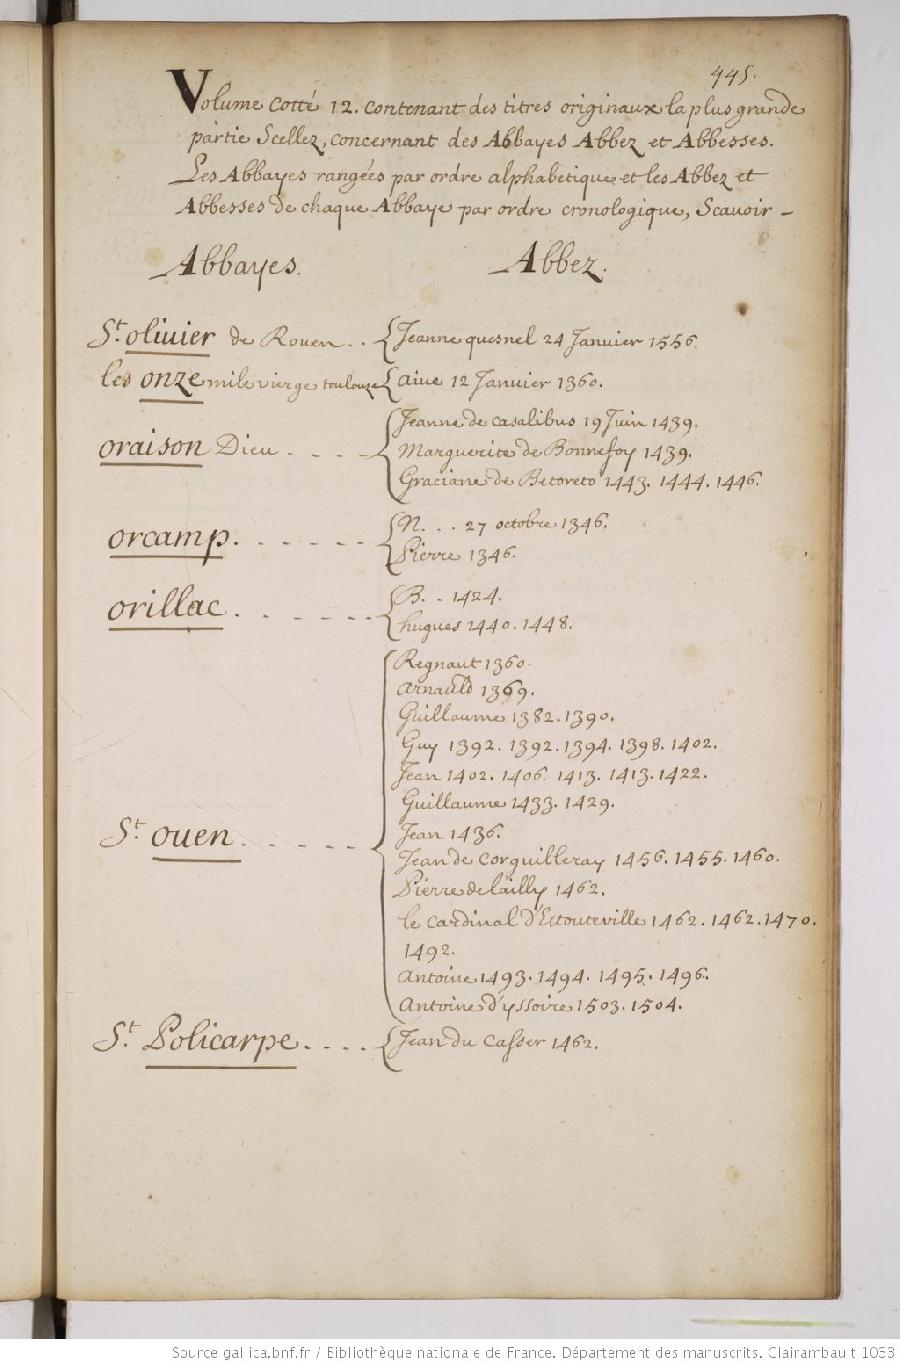 445.
Volume Cotté 12. contenant des titres originaux la plus grande
partie Scellez, concernant des Abbayes Abbez et Abbesses.
Les Abbayes rangées par ordre alphabetique et les Abbez et
Abbesses de chaque Abbaye par ordre cronologique, Scauoir -
Abbayes. Abbez.
St. oliuier de Rouen . . Jeanne quesnel 24 Januier 1556.
les onze mile vierge toulouze aiue 12 Januier 1360.
Jeanne de casalibus 19 Juin 1439.
oraison Dieu . - - - Marguerite de Bonnefoy 1439.
Graciane de Betoreto 1443. 1444. 1446.
N. . . 27 octobre 1346.
orcamp. - - - - - -
Pierre 1346.
B. . 1424.
orillac. - - - - - -
hugues 1440. 1448.
Regnaut 1360.
arnauld 1369.
Guillaume 1382. 1390.
Guy 1392. 1392. 1394. 1398. 1402.
Jean 1402. 1406. 1413. 1413. 1422.
Guillaume 1433. 1429.
St. ouen. - - - - Jean 1436.
Jean de Corquilleray 1456. 1455. 1460.
Pierre de lailly 1462.
le cardinal d'Estouteville 1462. 1462. 1470.
1492.
Antoine 1493. 1494. 1495. 1496.
Antoine d'yssoire 1503. 1504.
St. Policarpe. - - - Jean du Casser 1462.
Source gallica.bnf.fr / Bibliothèque nationale de France. Département des manuscrits. Clairambault 1033